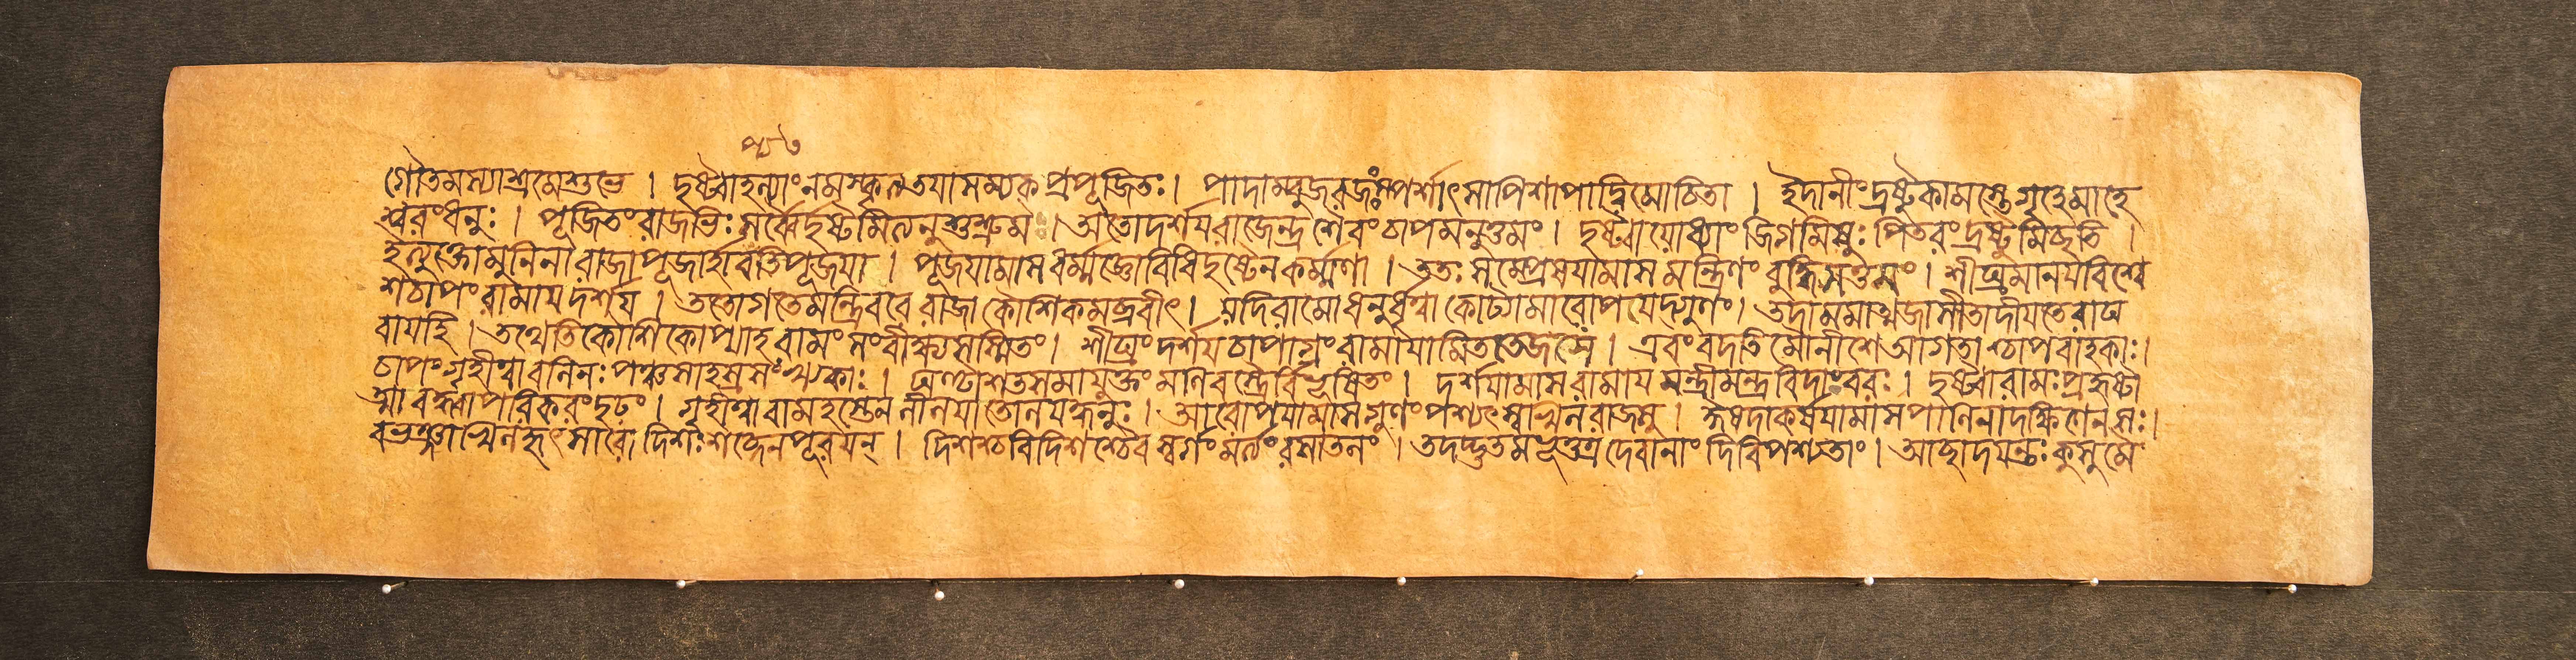 গৌতমস্যাশ্রমেশুভে । দৃষ্ট্বাহল্যাংনমস্কৃত্যতয়াসম্যক্প্রপূজিতঃ। পাদাম্বুজরজঃস্পর্শাৎসাপিশাপাদ্বিমোচিতা । ইদানীংদ্রষ্টুকামস্তেগৃহেমাহে
শ্বরংধনুঃ । পূজিতংরাজভিঃসর্ব্বৈর্দৃষ্টমিত্যনুশুশ্রুম । অতোদর্শয়রাজেন্দ্রশৈবংচাপমনুত্তমং । দৃষ্ট্বায়োধ্যাংজিগমিষুঃপিতরংদ্রষ্টুমিচ্ছতি ।
ইত্যুক্তোমুনিনারাজাপূজার্হাবতিপূজয়া । পূজয়ামাসধর্ম্মজ্ঞোবিধিদৃষ্টেনকর্ম্মণা । ততঃসংপ্রেষয়ামাসমন্ত্রিণংবুদ্ধিমত্তমং । শীঘ্রমানয়বিশ্বে
শচাপংরামায়দর্শয় । ততোগতেমন্ত্রিবরেরাজাকৌশিকমব্রবীৎ । যদিরামোধনুর্ধৃত্বাকোট্যামারোপয়েদ্গুণং । তদামমাত্মজাসীতাদীয়তেরাঘ
বায়হি । তথেতিকৌশিকোপ্যাহরামংসংবীক্ষ্যসস্মিতং । শীঘ্রংদর্শয়চাপাগ্রংরামায়ামিততেজসে । এবংবদতিমৌনীশেআগতাশ্চাপবাহকাঃ।
চাপংগৃহীত্বাবলিনঃপঞ্চসাহস্রসংখ্যকাঃ । ঘণ্টাশতসমাযুক্তংমণিবস্ত্রৈর্বিভূষিতং । দর্শয়ামাসরামায়মন্ত্রীমন্ত্রবিদাংবরঃ । দৃষ্ট্বারামঃপ্রহৃষ্টা
ত্মাবদ্ধ্বাপরিকরংদৃঢং । গৃহীত্বাবামহস্তেনলীলয়াতোলয়দ্ধনুঃ । আরোপয়ামাসগুণংপশ্যৎস্বখিলরাজসু । ঈষদাকর্ষয়ামাসপাণিনাদক্ষিণেনসঃ।
বভঞ্জাখিলহৃৎসারোদিশঃশব্দেনপূরয়ন্ । দিশশ্চবিদিশশ্চৈবস্বর্গংমর্ত্যংরসাতলং । তদদ্ভুতমভূত্তত্রদেবানাংদিবিপশ্যতাং । আচ্ছাদয়ন্তঃকুসুমৈ